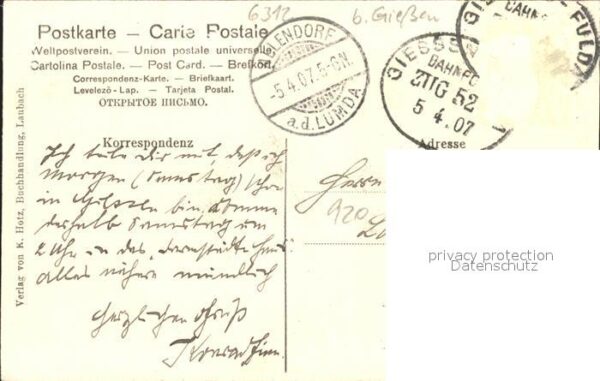 6312
b. Gießen
Postkarte — Carte Postale
Weltpostverein. — Union postale universelle.
Cartolina Postale. — Post Card. — Brefkort.
Correspondenz-Karte. — Briefkaart.
Levelező-Lap. — Tarjeta Postal.
ОТКРЫТОЕ ПИСЬМО.
-5.4.07.5-6N.
a.d.LUMDA
GIESSEN FULDA
BAHNP
GIESSEN
BAHNPO
ZUG 52
5 4 07
Adresse
Korrespondenz
Ich teile Dir mit, daß ich
morgen (Samstag) schon
in Giessen bin. Komme
deshalb Samstag um
2 Uhr in das Darmstädter Haus
alles nähere mündlich
Herzlichen Gruß
Konrad
Herrn
920
Verlag von K. Hotz, Buchhandlung, Laubach
privacy protection
Datenschutz